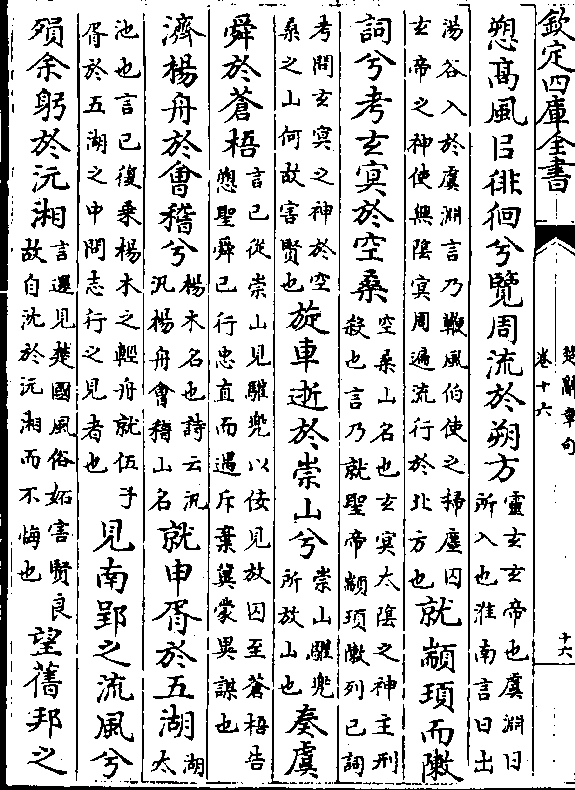 欽定四庫全書
楚辭章句
卷十六
十六
愬高風㠯徘徊兮覽周流於朔方靈玄玄帝也虞淵日所入也淮南言日出
湯谷入於虞淵言乃鞭風伯使之掃塵囚玄帝之神使與陰冥周遍流行於北方也就顓頊而敶
詞兮考玄冥於空桑空桑山名也玄冥太陰之神主刑殺也言乃就聖帝顓頊敶列己詞
考問玄冥之神於空桑之山何故害賢也旋車逝於崇山兮崇山驩兜所放山也奏虞
舜於蒼梧言己從崇山見驩兜以佞見放囚至蒼梧告愬聖舜己行忠直而遇斥棄冀蒙異謀也
濟楊舟於會稽兮楊木名也詩云汎汎楊舟會稽山名就申胥於五湖湖太
池也言己復乘楊木之輕舟就伍子胥於五湖之中問志行之見者也見南郢之流風兮
殞余躬於沅湘言還見楚國風俗妬害賢良故自沈於沅湘而不悔也望舊邦之